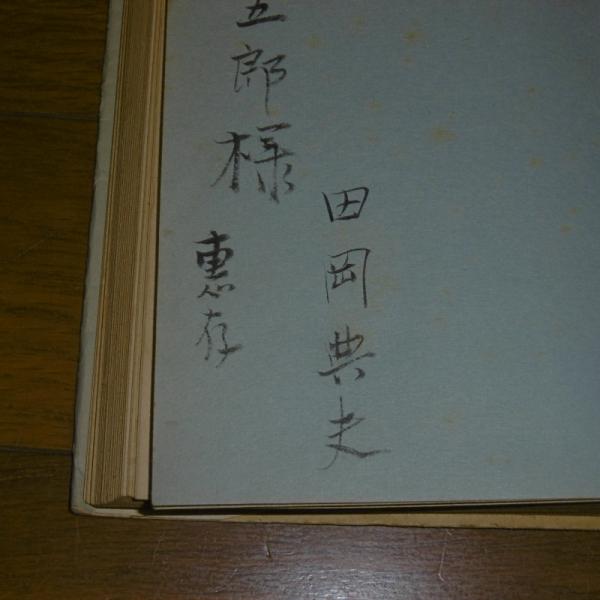 田岡典夫
五郎様
惠存